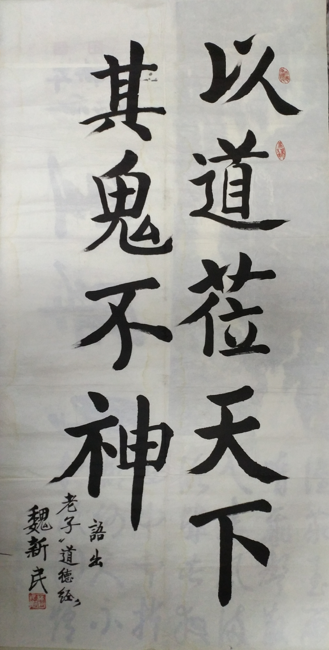 以道莅天下
其鬼不神
語出
老子《道德经》
魏新民